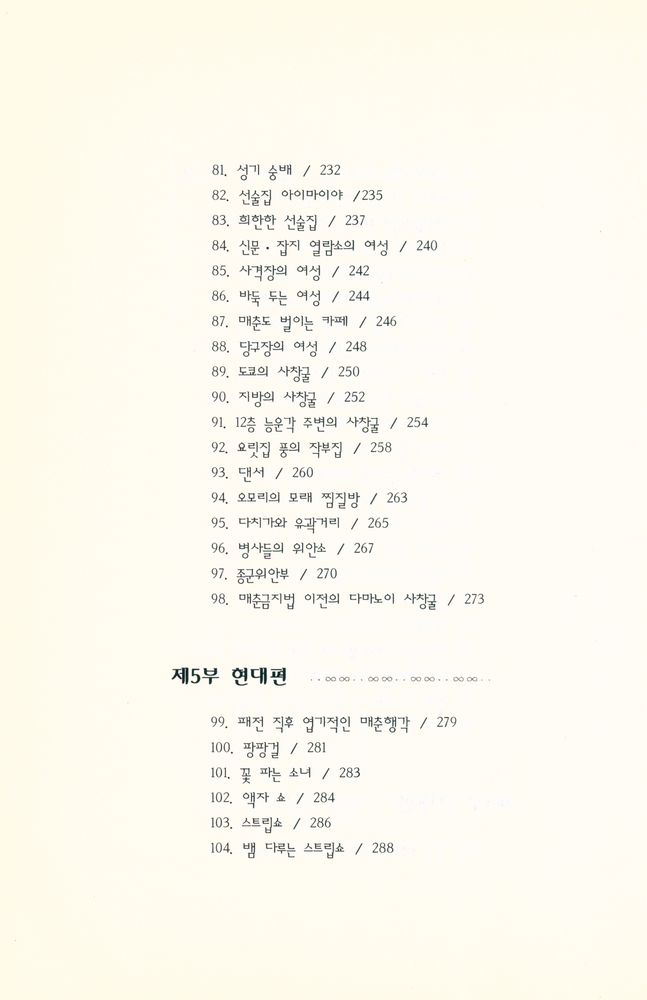 81. 성기 숭배 / 232
82. 선술집 아이마이야 /235
83. 희한한 선술집 / 237
84. 신문·잡지 열람소의 여성 / 240
85. 사격장의 여성 / 242
86. 바둑 두는 여성 / 244
87. 매춘도 벌이는 카페 / 246
88. 당구장의 여성 / 248
89. 도쿄의 사창굴 / 250
90. 지방의 사창굴 / 252
91. 12층 능운각 주변의 사창굴 / 254
92. 요릿집 풍의 작부집 / 258
93. 댄서 / 260
94. 오모리의 모래 찜질방 / 263
95. 다치가와 유곽거리 / 265
96. 병사들의 위안소 / 267
97. 종군위안부 / 270
98. 매춘금지법 이전의 다마노이 사창굴 / 273
제5부 현대편 ··∞∞··∞∞··∞∞··∞∞··
99. 패전 직후 엽기적인 매춘행각 / 279
100. 팡팡걸 / 281
101. 꽃 파는 소녀 / 283
102. 액자 쇼 / 284
103. 스트립쇼 / 286
104. 뱀 다루는 스트립쇼 / 288